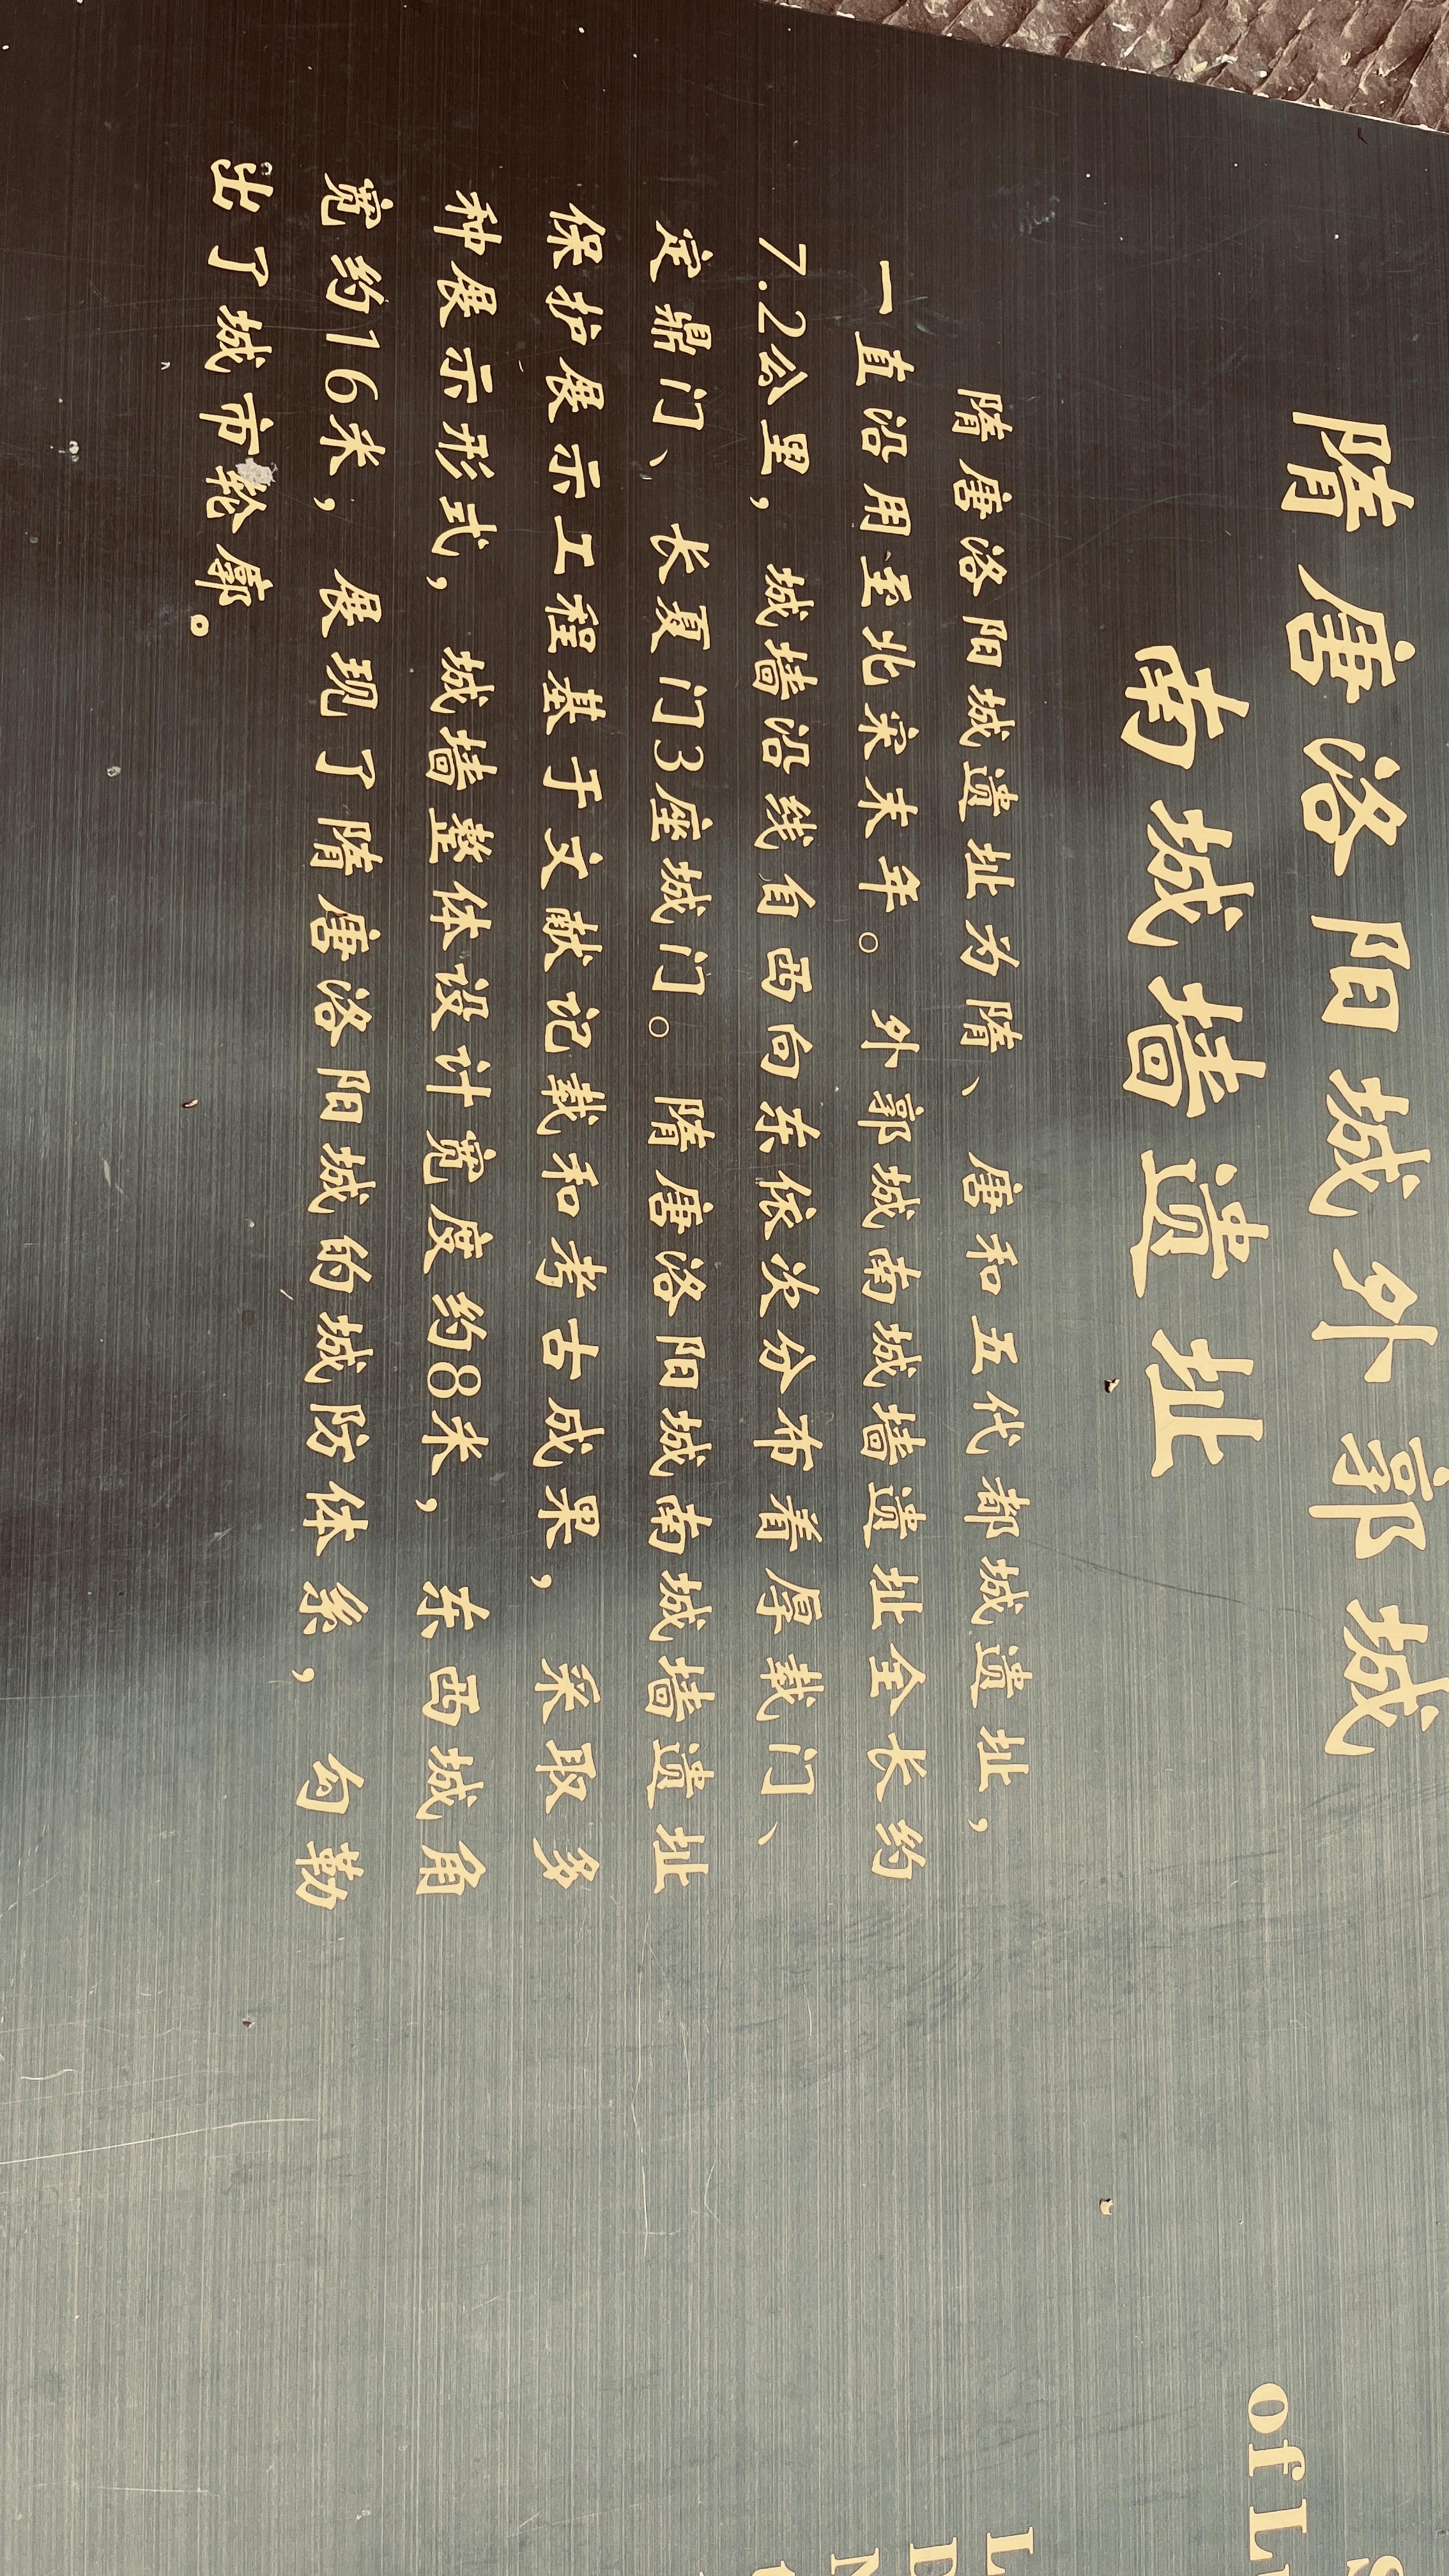 隋唐洛阳城外郭城
南城墙遗址
隋唐洛阳城遗址为隋、唐和五代都城遗址，
一直沿用至北宋末年。外郭城南城墙遗址全长约
7.2公里，城墙沿线自西向东依次分布着厚载门、
定鼎门、长夏门3座城门。隋唐洛阳城南城墙遗址
保护展示工程基于文献记载和考古成果，采取多
种展示形式，城墙整体设计宽度约8米，东西城角
宽约16米，展现了隋唐洛阳城的城防体系，勾勒
出了城市轮廓。
of L